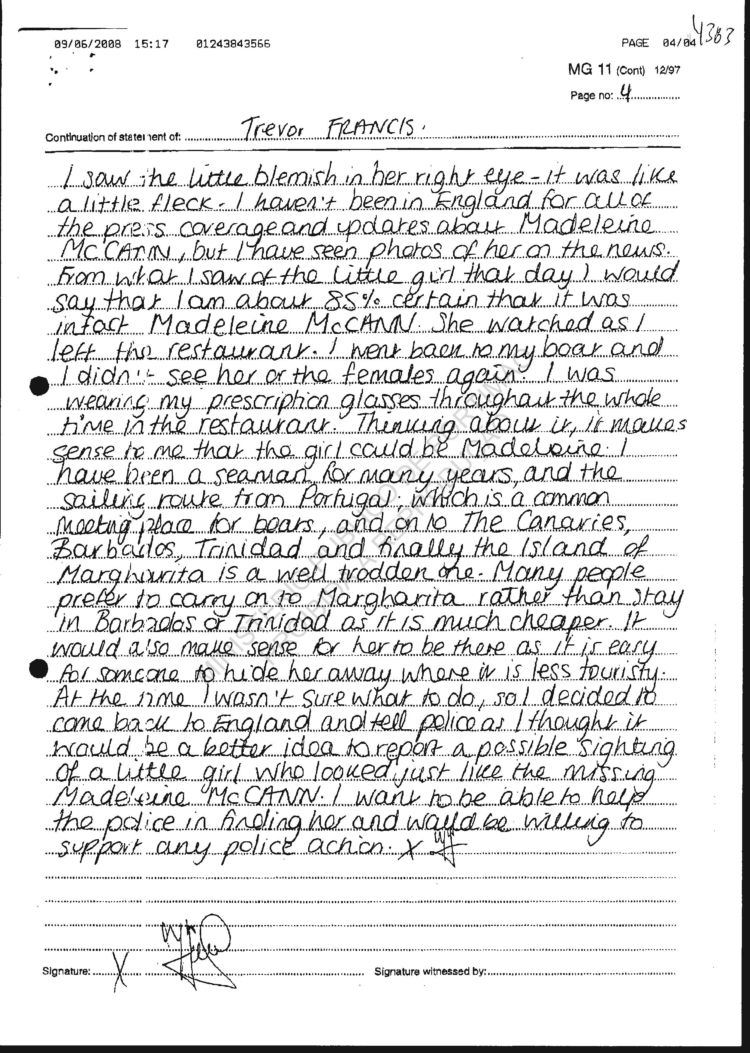 4383
09/06/2008 15:17 01243843566 PAGE 04/04
MG 11 (Cont) 12/97
Page no: 4
Continuation of statement of: Trevor FRANCIS.
I saw the little blemish in her right eye - it was like
a little fleck. I haven't been in England for all of
the press coverage and updates about Madeleine
McCANN, but I have seen photos of her on the news.
From what I saw of the little girl that day I would
say that I am about 85% certain that it was
infact Madeleine McCANN. She watched as I
left the restaurant. I went back to my boat and
I didn't see her or the females again. I was
wearing my prescription glasses throughout the whole
time in the restaurant. Thinking about it, it makes
sense to me that the girl could be Madeleine. I
have been a seaman for many years, and the
sailing route from Portugal, which is a common
meeting place for boats, and on to The Canaries,
Barbados, Trinidad and finally the Island of
Margharita is a well trodden one. Many people
prefer to carry on to Margharita rather than stay
in Barbados or Trinidad as it is much cheaper. It
would also make sense for her to be there as it is easy
for someone to hide her away where it is less touristy.
At the time I wasn't sure what to do, so I decided to
come back to England and tell police as I thought it
would be a better idea to report a possible sighting
of a little girl who looked just like the missing
Madeleine McCANN. I want to be able to help
the police in finding her and would be willing to
support any police action. X
Signature: X Signature witnessed by: